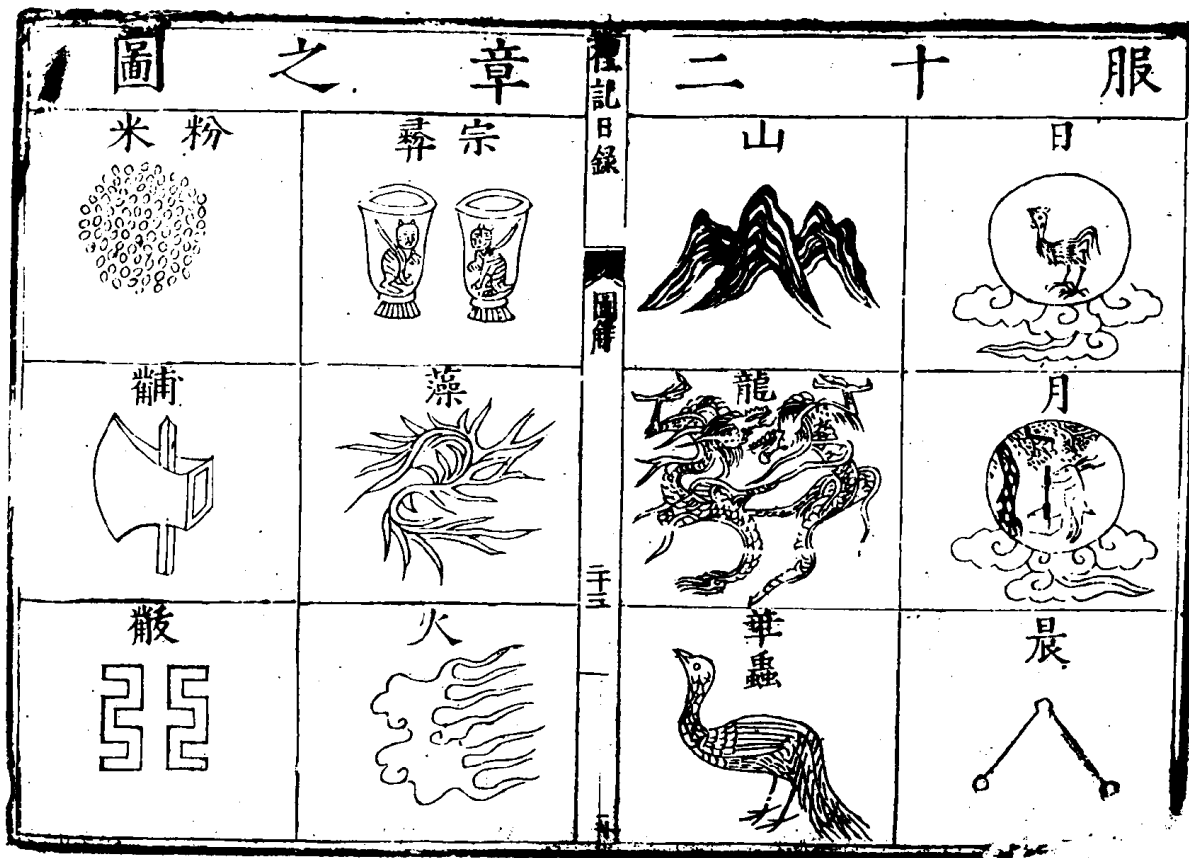 服十二章之圖
日
月
晨
山
龍
華蟲
禮記日録
圖解
宗彝
藻
火
粉米
黼
黻